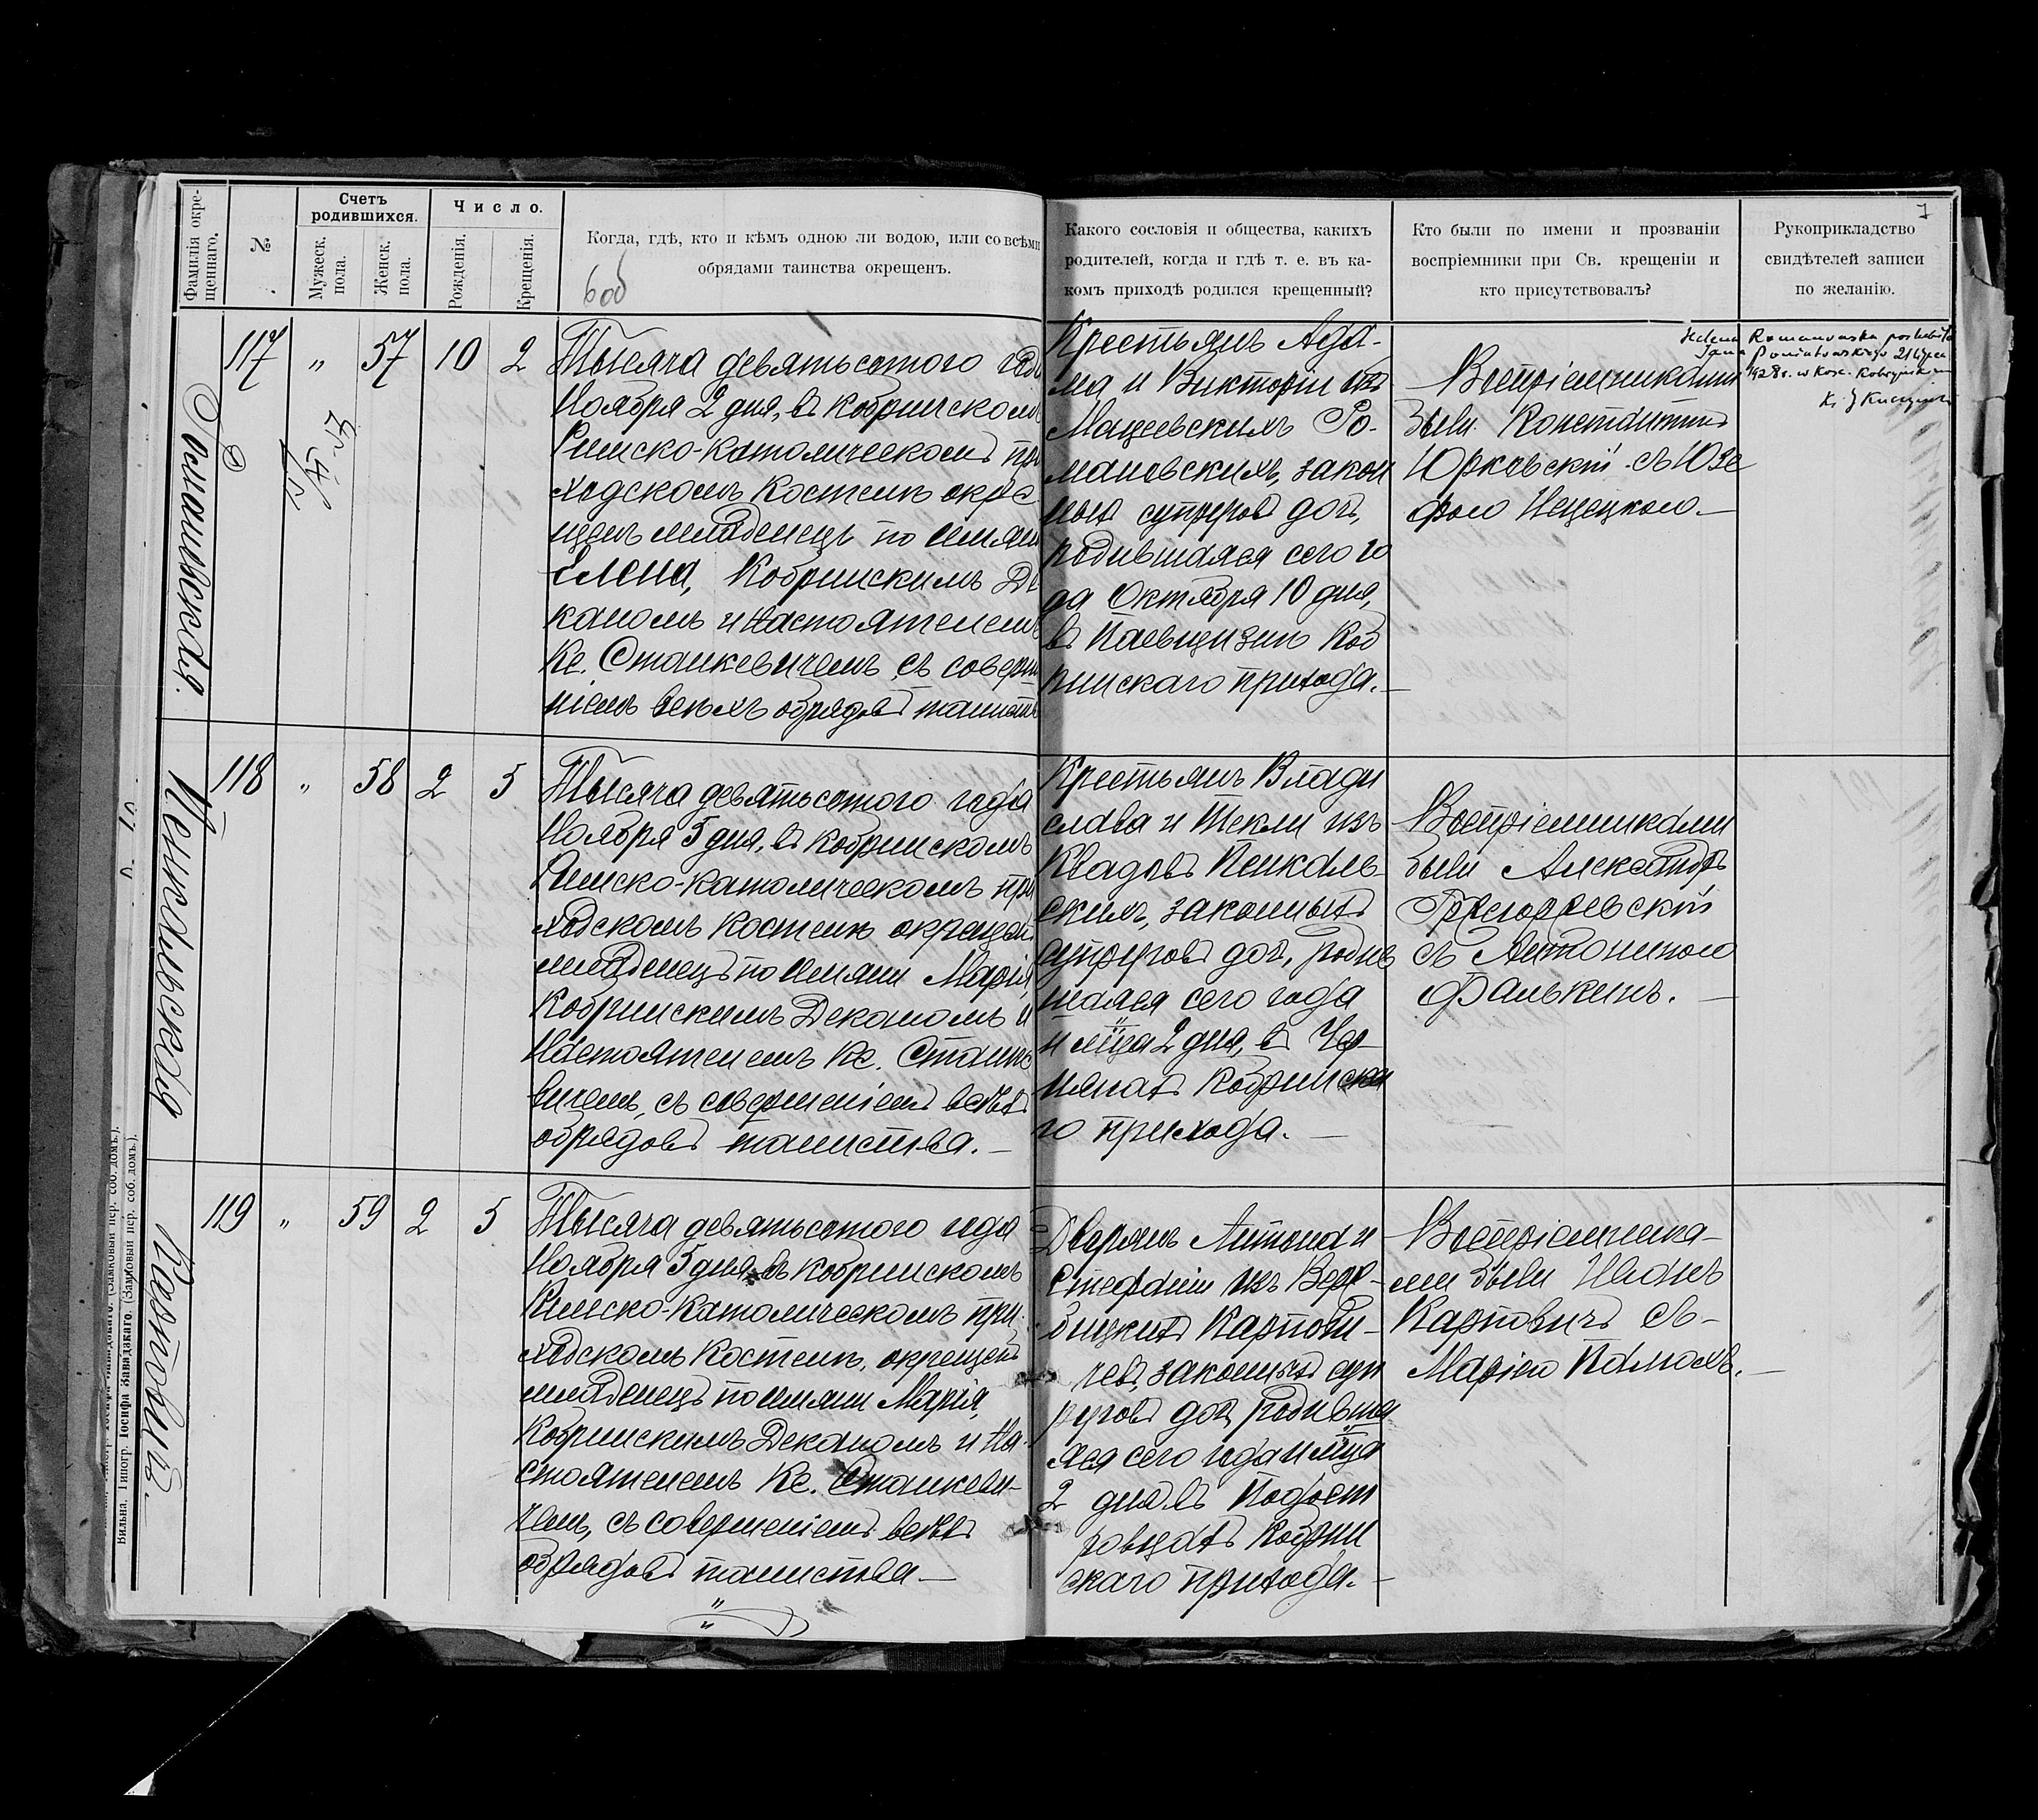 Фамилія окре-
щеннаго.
№
Счетъ
родившихся.
Мужеск.
пола.
Женск.
пола.
Число.
Рожденія.
Крещенія.
Когда, гдѣ, кто и кѣмъ одною ли водою, или со всѣми
обрядами таинства окрещенъ.
Какого сословія и общества, какихъ
родителей, когда и гдѣ т. е. въ ка-
комъ приходѣ родился крещенный?
Кто были по имени и прозванію
воспріемники при Св. крещеніи и
кто присутствовалъ?
Рукоприкладство
свидѣтелей записи
по желанію.
7
Романовская.
117 " 57 10 2
Тысяча девятьсотого года
Ноября 2 дня, въ Кобринскомъ
Римско-католическомъ при
ходскомъ Костелѣ окре
щенъ младенецъ по имяни
Елена, Кобринскимъ Де
каномъ и настоятелемъ
Кс. Станкевичемъ, съ соверше
ніемъ всѣхъ обрядовъ таинства
Крестьянъ Ада-
ма и Викторіи изъ
Мацеевскихъ Ро-
мановскихъ, закон
ныхъ супруговъ дочь,
родившаяся сего го
да Октября 10 дня,
въ Коб
ринскаго прихода.
Воспріемниками
были Константинъ
Юрковскій съ Юзе
фою Нецецкою.
Helena Romanowska poślubiła
Jana Poniatowskiego 21 lipca
1928 r. w Kość. Kobryńskim
Пенкальская
118 " 58 2 5
Тысяча девятьсотого года
Ноября 5 дня, въ Кобринскомъ
Римско-католическомъ при
ходскомъ Костелѣ окрещенъ
младенецъ по имяни Марія,
Кобринскимъ Деканомъ и
Настоятелемъ Кс. Станке
вичемъ, съ совершеніемъ всѣхъ
обрядовъ таинства.
Крестьянъ Влади
слава и Текли изъ
Квадовъ Пенкаль
скихъ, законныхъ
супруговъ дочь, родив
шаяся сего года
и мѣсяца 2 дня, въ
Кобринска
го прихода.
Воспріемниками
были Александръ
Григоревскій
съ Антониною
Фалькинъ.
Карповичъ.
119 " 59 2 5
Тысяча девятьсотого года
Ноября 5 дня, въ Кобринскомъ
Римско-католическомъ при
ходскомъ Костелѣ, окрещенъ
младенецъ по имяни Марія,
Кобринскимъ Деканомъ и На-
стоятелемъ Кс. Станкеви-
чемъ, съ совершеніемъ всѣхъ
обрядовъ таинства
Дворянъ Антона и
Стефаніи изъ Вер-
бицкихъ Карпови-
чевъ, законныхъ суп
руговъ дочь, родивша
яся сего года и мѣсяца
2 дня въ
Кобрин
скаго прихода.
Воспріемника-
ми были Иванъ
Карповичъ съ
Маріею
Вильна. Типогр. Іосифа Завадзкаго. (Замковый пер. соб. домъ.).